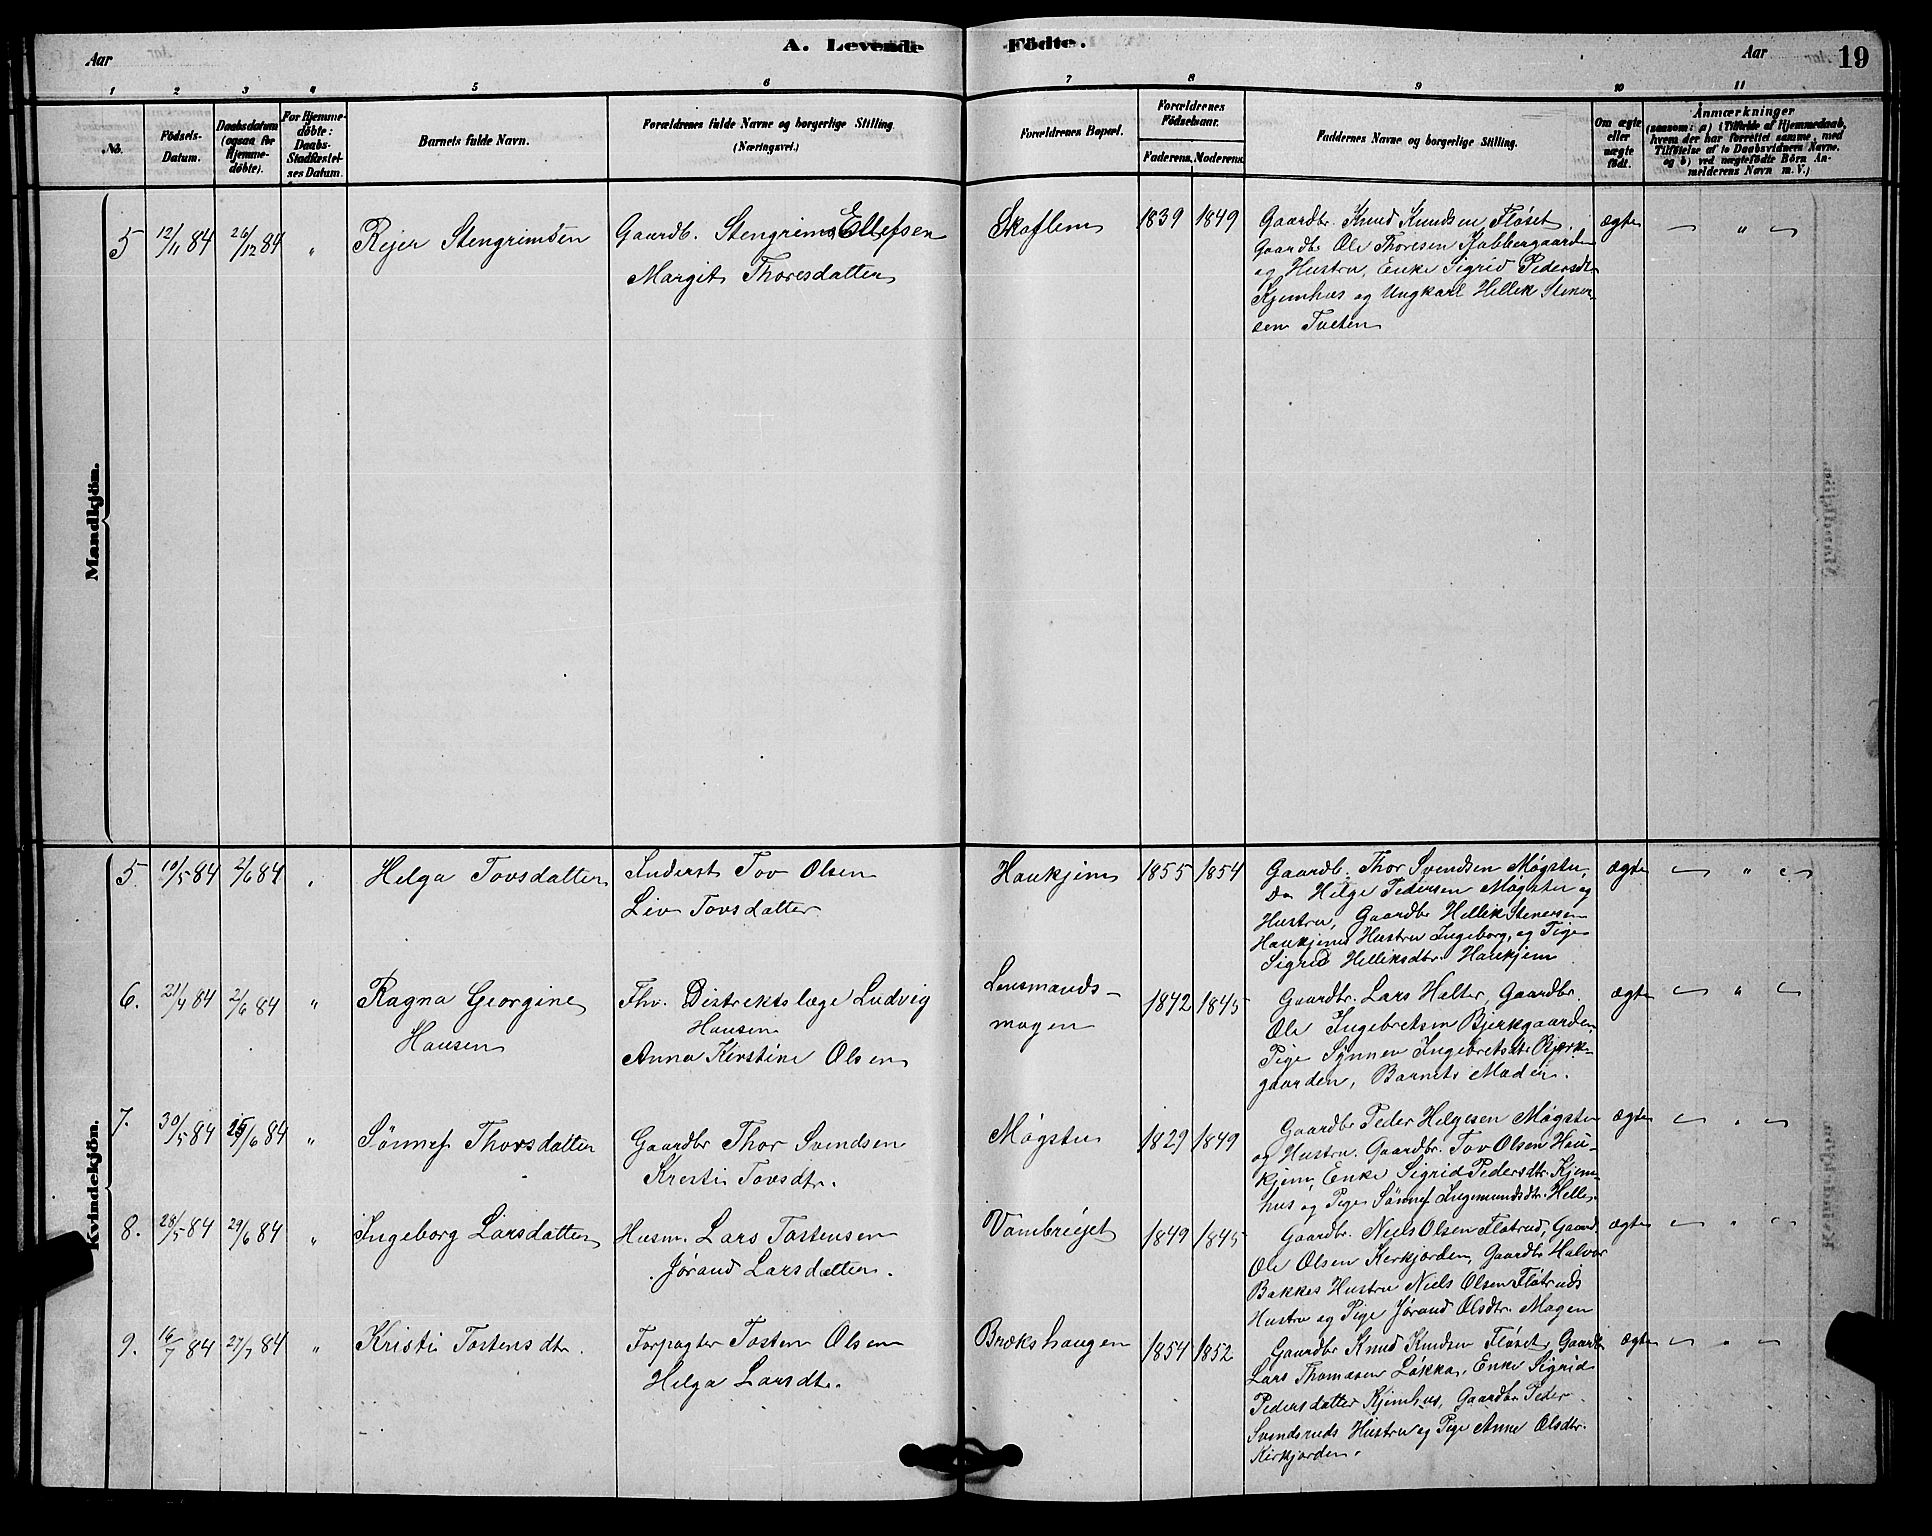 A. Levende
Födte.
Aar
Aar
19
1 2 3 4 5 6 7 8 9 10 11
No.
Födsels-
Datum.
Daabsdatum
(ogsaa for
Hjemme-
döbte).
For Hjemme-
döbte:
Daabs-
Stadfæstel-
ses Datum.
Barnets fulde Navn.
Forældrenes fulde Navne og borgerlige Stilling
(Næringsvei.)
Forældrenes Bopæl.
Forældrenes
Födselsaar.
Faderens. Moderens.
Faddernes Navne og borgerlige Stilling.
Om ægte
eller
uægte
födt.
Anmærkninger
(saasom: a) i Tilfælde af Hjemmedaab,
hvem der har forrettet samme, med
Tilföielse af to Daabsvidners Navne,
og b) ved uægtefödte Börn An-
melderens Navn m. V.)
Mandkjön.
5 12/11 84 26/12 84 " Rejer Stengrimsen
Gaardb. Stengrim Ellefsen
Margit Thoresdatter
Skaflem 1839 1849
Gaardbr. Knud Knudsen Fløset,
Gaardbr Ole Thoresen Kobbergaarden
og Hustru, Enke Sigrid Pedersdtr
Kjemhus og Ungkarl Hellik Stener-
sen Tveten
ægte "
Kvindekjön.
5. 10/5 84 2/6 84 " Helga Tovsdatter
Inderst Tov Olsen
Liv Tovsdatter
Haukjem 1855 1854
Gaardb. Thor Svendsen Møgstu,
Do Helge Pedersen Møgstu og
Hustru, Gaardbr Hellik Stenersen
Haukjems Hustru Ingeborg, og Pige
Sigrid Helliksdtr. Haukjem
ægte "
6. 21/4 84 2/6 84 " Ragna Georgine
Hansen
Fhv. Distriktslæge Ludvig
Hansen
Anna Kirstine Olsen
Lensmands-
mogen
1842 1845
Gaardbr. Lars Halter, Gaardbr.
Ole Ingebretsen Bjerkgaarden
Pige Synnev Ingebretsdtr Bjerk-
gaarden, Barnets Moder.
ægte "
7. 30/5 84 25/6 84 " Sønnef Thorsdatter
Gaardbr Thor Svendsen
Kresti Tovsdtr.
Møgstu 1829 1849
Gaardbr Peder Helgesen Møgstu
og Hustru. Gaardbr. Tov Olsen Hau-
kjem, Enke Sigrid Pedersdtr. Kjem-
hus og Pige Sønnef Ingemundsdtr. Helle.
ægte "
8. 28/5 84 29/6 84 " Ingeborg Larsdatter
Husm. Lars Tostensen
Jørand Larsdatter.
Vambrejet 1849 1845
Gaardbr. Niels Olsen Flotrud, Gaardb.
Ole Olsen Kirkjorden, Gaardbr Halvor
Bakkes Hustru Niels Olsen Flotruds
Hustru og Pige Jørand Olsdtr. Mogen
ægte "
9. 16/7 84 27/7 84 " Kristi Tostensdtr.
Forpagter Tosten Olsen
Helga Larsdtr.
Brækshaugen 1854 1852
Gaardbr Knud Knudsen Fløset, Gaardb
Lars Thomasen Løkka, Enke Sigrid
Pedersdatter Kjemhus, Gaardbr Peder
Svendsruds Hustru og Pige Anne Olsdtr.
Kirkjorden.
ægte "